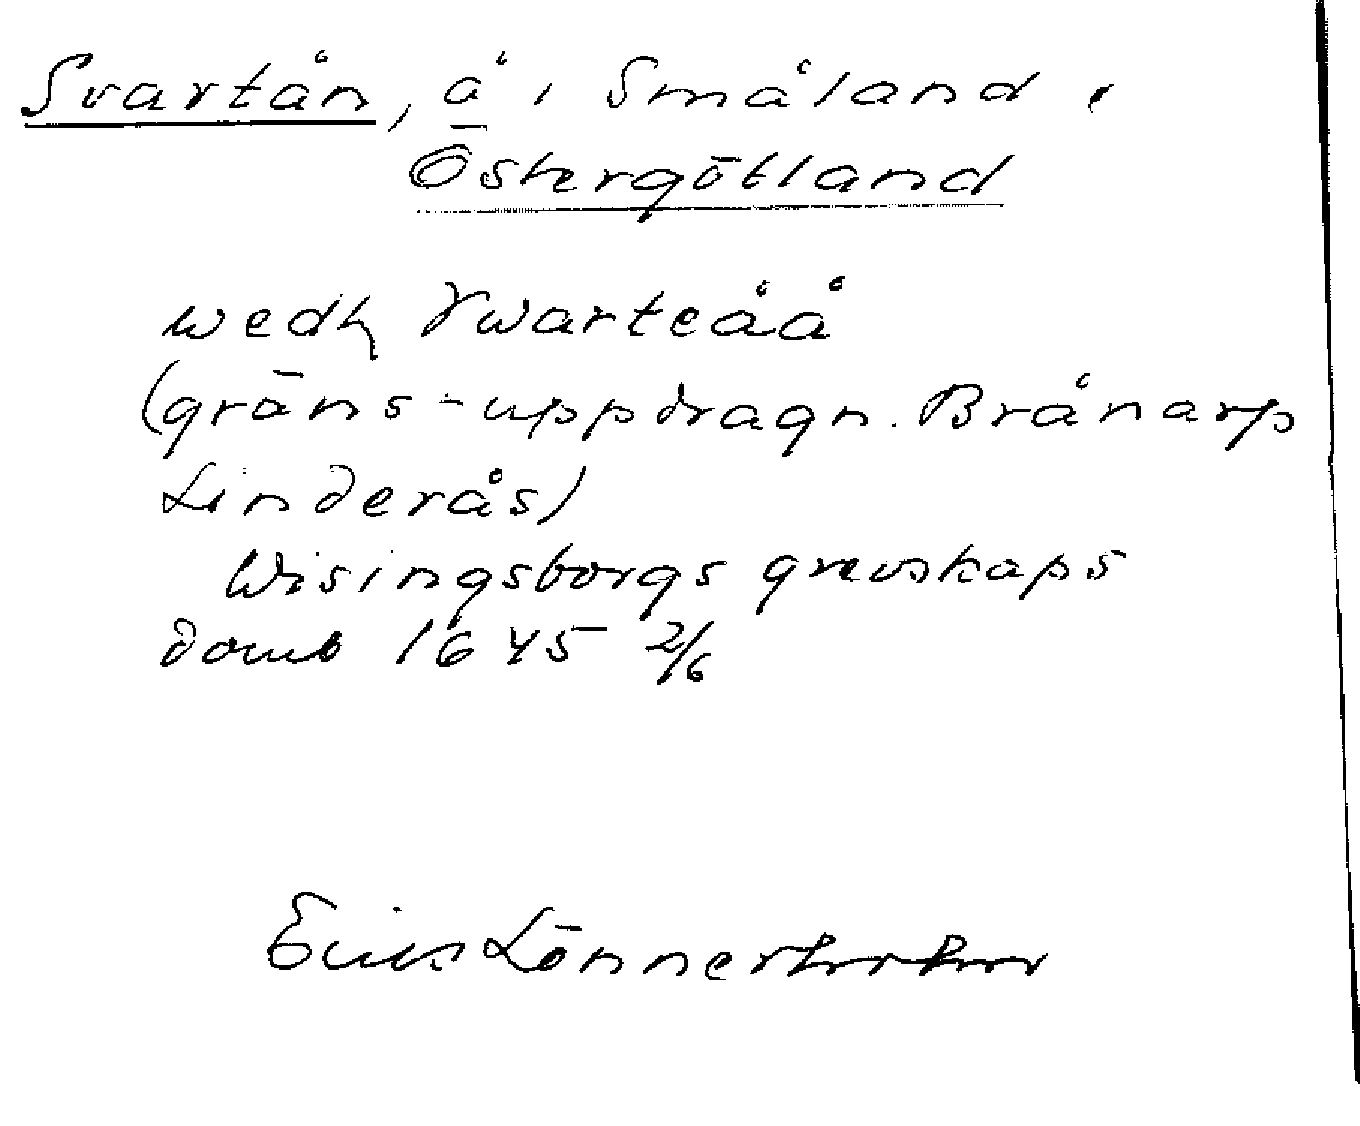 Svartån, å i Småland,
Östergötland
wedh Swarteåå
(gräns-uppdragn. Brånarp
Linderås)
Wisingsborgs grevskaps
domb 1645 2/6
Erik Lönnerholm